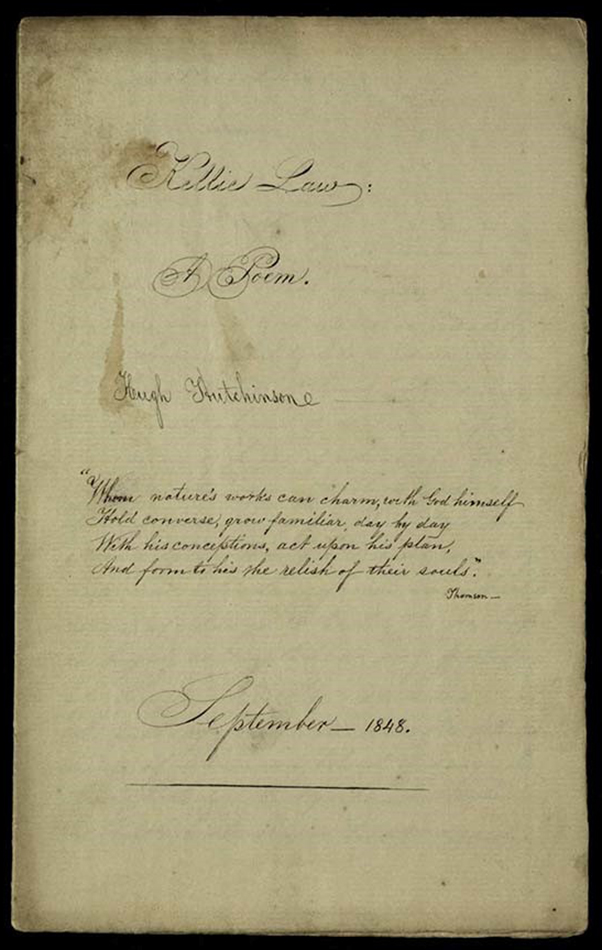 Kellie Law:
A Poem.
Hugh Hutchinson
"Whom nature's works can charm, with God himself
Hold converse, grow familiar, day by day
With his conceptions, act upon his plan,
And form to his the relish of their souls".
Thomson—
September — 1848.